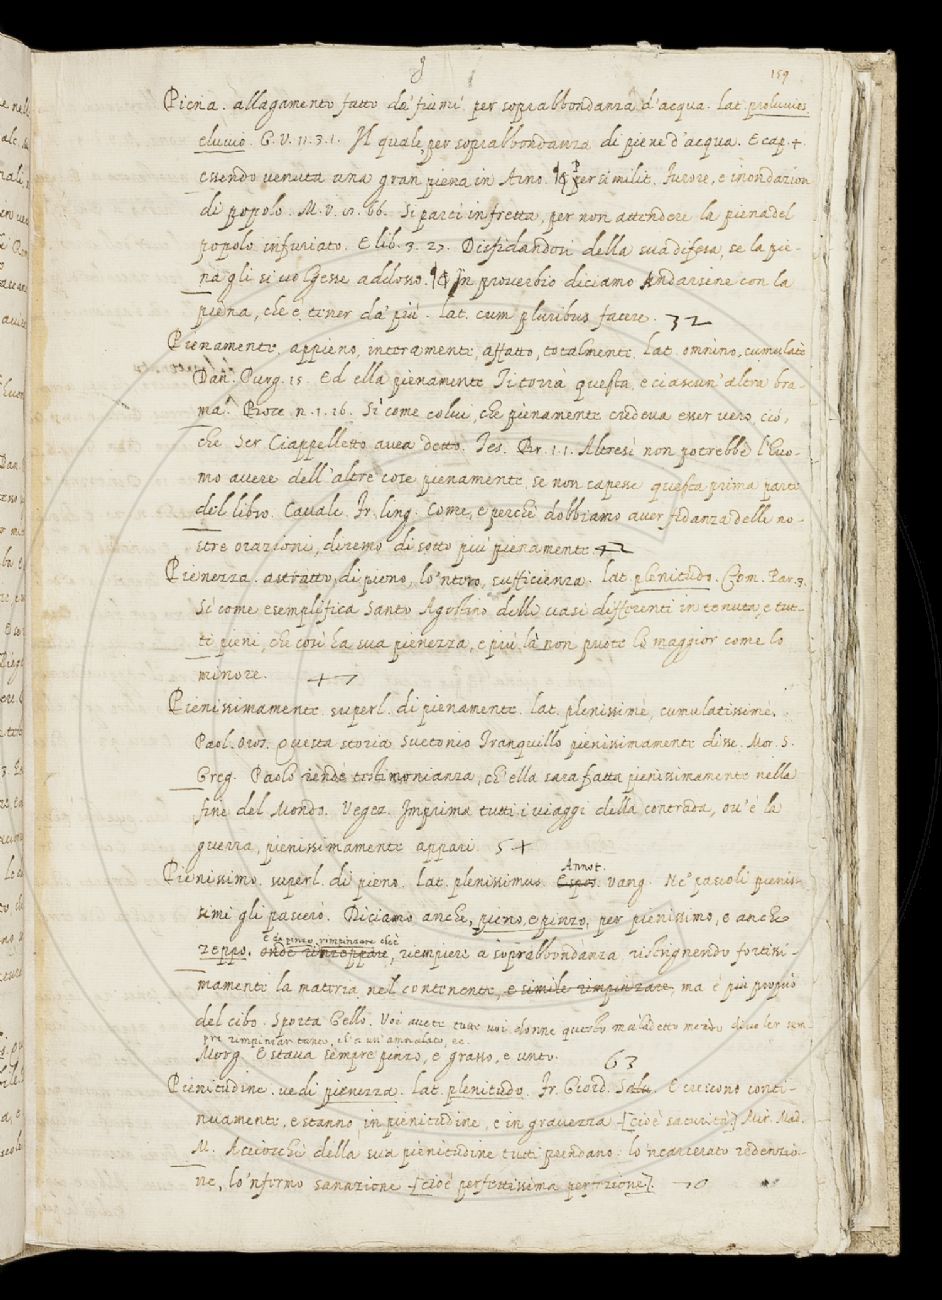 159
Piena. allagamento fatto da' fiumi per soprabbondanza d'acqua. Lat. proluvies.
eluvio. G. V. 11. 3. 1. Il quale, per soprabbondanza di piene d'acqua. E cap. 4.
essendo venuta una gran piena in Arno. Per similit. furore, e inondazion
di popolo. M. V. 66. Si partì in fretta, per non attendere la piena del
popolo infuriato. E lib. 3. 27. Disfidandosi della sua difesa, se la pie-
na gli si volgesse addosso. In proverbio diciamo Andarsene con la
piena, che è tener da' più. lat. cum pluribus facere. 32
Pienamente, appieno, interamente, affatto, totalmente. Lat. omnino, cumulatè
Dan. Purg. 15. Ed ella pienamente Ti torrà questa, e ciascun' altra bra-
ma. Bocc. n. 1. 26. Sì come colui, che pienamente credeva esser vero ciò,
che Ser Ciappelletto avea detto. Tes. Br. 1. 1. Altresì non potrebbe l'huo-
mo avere dell'altre cose pienamente, se non sapesse questa prima parte
del libro. Cavalc. Fr. ling. Come, e perchè dobbiamo aver fidanza delle no-
stre orazioni, diremo di sotto più pienamente 42
Pienezza. astratto, di pieno, lo 'ntero, sufficienza. lat. plenitudo. Com. Par. 3.
Sì come esemplifica Santo Agostino delle vasi differenti in tenuta, e tut-
ti pieni, che così ha sua pienezza, e più là non puote lo maggior come lo
minore. 47
Pienissimamente. superl. di pienamente. lat. plenissimè, cumulatissimè.
Paol. Oros. Questa storia Suetonio Tranquillo pienissimamente disse. Mor. S.
Greg. Paolo rende testimonianza, ch'ella sara fatta pienissimamente nella
fine del Mondo. Vegez. Imprima tutti i viaggi della contrada, ov'è la
guerra, pienissimamente appari. 54
Annot.
Pienissimo. superl. di pieno. lat. plenissimus. Espos. Vang. Ne' pascoli pienis-
simi gli pascerò. Diciamo anche, pieno, e pinzo, per pienissimo, e anche
E da pinzo, rimpinzare cioè
zeppo. onde rinzeppare, riempiere a soprabbondanza ristrignendo fortissi-
mamente la materia nel contenente, e simile rimpinzare, ma è più proprio
del cibo. Sporta Gello. Voi avete tutte voi donne questo maladetto modo di voler sem-
pre rimpinzar tanto, ch'è un' ammalato, ec.
Morg. E stava sempre pinzo, e grasso, e unto. 63
Pienitudine. vedi pienezza. lat. plenitudo. Fr. Giord. Salu. E crescono conti-
nuamente, e stanno in pienitudine, e in gravezza [cioè sacurità] Mir. Mad.
M. Acciocchè della sua pienitudine tutti prendano: lo 'ncarcerato redenzio-
ne, lo 'nfermo sanazione [cioè perfettissima perfezione]. 70